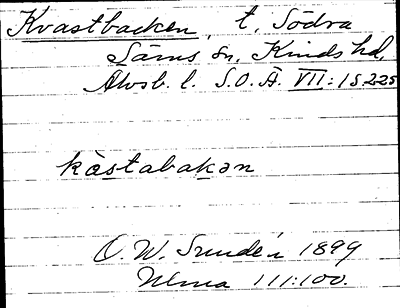 Kvastbacken, t. Södra
Säms sn, Kinds hd,
Älvsb. l. S.O.Ä. VII:1 S.225
kàstabakən
O. W. Sundén 1899
Ulma 111:100.